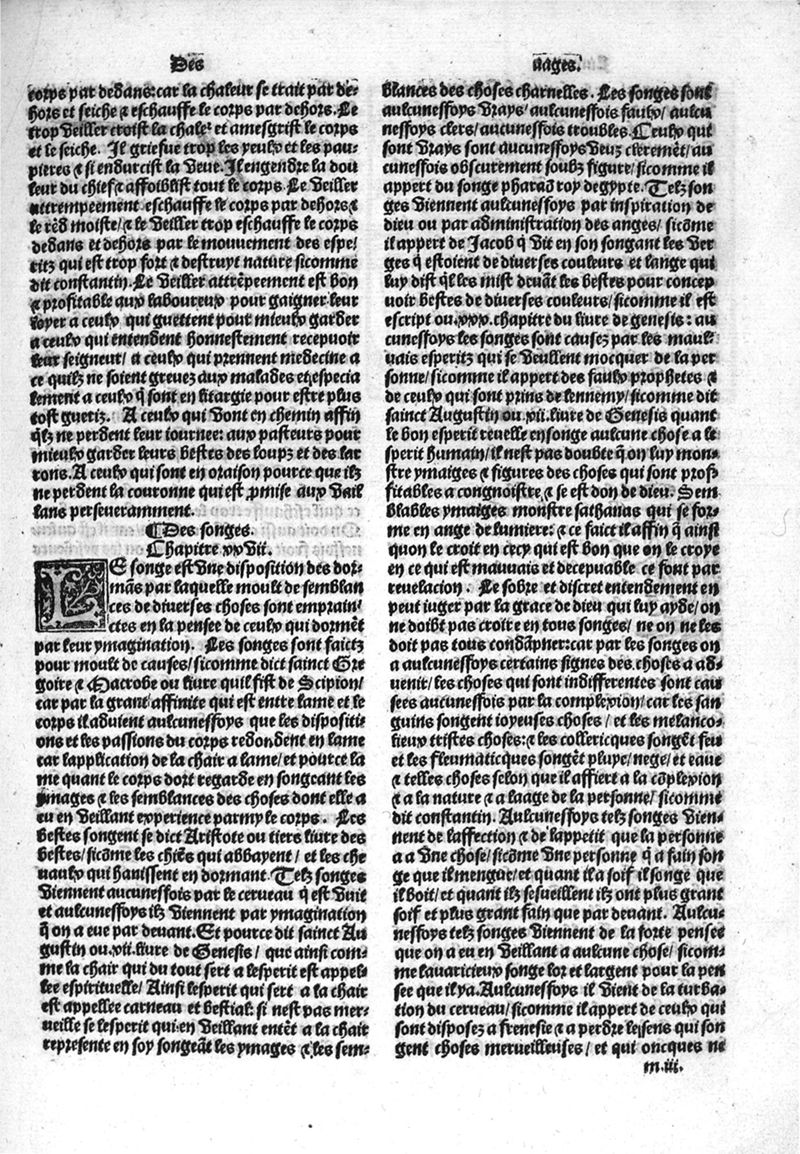 Des
aages.
corps par dedans: car la chaleur se trait par de-
hors et seiche & eschauffe le corps par dehors. Le
trop veiller croist la chale² et amesgrist le corps
et le seiche. Il griefue trop les yeulx et les pau-
pieres & si endurcist la veue. Il engendre la dou
leur du chief & affoiblist tout le corps. Le veiller
attrempeement eschauffe le corps par dehors &
le rẽd moiste/ & le veiller trop eschauffe le corps
dedans et dehors par le mouuement des espe/
ritz qui est trop fort & destruyt nature sicomme
dit constantin. Le veiller attrẽpeement est bon
& profitable aux laboureux pour gaigner leur
loyer a ceulx qui guettent pour mieulx garder
a ceulx qui entendent honnestement recepuoir
leur seigneur/ a ceulx qui prennent medecine a
ce quilz ne soient greuez aux malades et especia
lement a ceulx q̃ sont en litargie pour estre plus
tost gueriz. A ceulx qui vont en chemin affin
q̃lz ne perdent leur iournee: aux pasteurs pour
mieulx garder leurs bestes des loupz et des lar
rons. A ceulx qui sont en oraison pource que ilz
ne perdent la couronne qui est ꝓmise aux vail
lans perseueramment.
¶Des songes.
Chapitre xxvii.
LE songe est vne disposition des dor-
mãs par laquelle moult de semblan
ces de diuerses choses sont emprain/
ctes en la pensee de ceulx qui dormẽt
par leur ymagination. Les songes sont faictz
pour moult de causes/ sicomme dict sainct Gre
goire & Macrobe ou liure quil fist de Scipion/
car par la grant affinite qui est entre lame et le
corps il aduient aulcunessoys que les dispositi-
ons et les passions du corps redondent en lame
car lapplication de la chair a lame/ et pource la
me quant le corps dort regarde en songeant les
ymages & les semblances des choses dont elle a
eu en veillant experience parmy le corps. Les
bestes songent se dict Aristote ou tiers liure des
bestes/ sicõme les chiẽs qui abbayent/ et les che
uaulx qui hanissent en dormant. Telz songes
viennent aucunessois par le cerueau q̃ est vuit
et aulcunessoys ilz viennent par ymagination
q̃ on a eue par deuant. Et pource dit sainct Au
gustin ou.xii. liure de Genesis/ que ainsi com-
me la chair qui du tout sert a lesperit est appel-
lee espirituelle/ Ainsi lesperit qui sert a la chair
est appellee carneau et bestial: si nest pas mer-
ueille se lesperit qui en veillant entẽt a la chair
represente en soy songeãt les ymages & les sem-
blances des choses charnelles. Les songes sont
aulcunessoys vrays/ aulcunessois faulx/ aulcu
nessoys clers/ aucunessois troubles. Ceulx qui
sont vrays sont aucunessoys veuz cleremẽt/ au
cunessois obscurement soubz figure/ sicomme il
appert du songe pharaõ roy degypte. Telz son
ges viennent aulcunessoys par inspiration de
dieu ou par administration des anges/ sicõme
il appert de Jacob q̃ vit en son songant les ver
ges q̃ estoient de diuerses couleurs et lange qui
luy dist q̃l les mist deuãt les bestes pour concep
uoir bestes de diuerses couleurs/ sicomme il est
escript ou.xxx. chapitre du liure de genesis: au
cunessoys les songes sont causez par les maul/
uais esperitz qui se veullent mocquer de la per
sonne/ sicomme il appert des faulx prophetes &
de ceulx qui sont prins de lennemy/ sicomme dit
sainct Augustin ou.xii. liure de Genesis quant
le bon esperit reuelle en songe aulcune chose a le
sperit humain/ il nest pas doubte q̃ on luy mon/
stre ymaiges & figures des choses qui sont prof/
fitables a congnoistre, & se est don de dieu. Sem
blables ymaiges monstre sathanas qui se for-
me en ange de lumiere: & ce faict il affin q̃ ainsi
quon le croit en cecy qui est bon que on le croye
en ce qui est mauuais et decepuable ce sont par
reuelacion. Le sobre et discret entendement en
peut iuger par la grace de dieu qui luy ayde/ on
ne doibt pas croire en tous songes/ ne on ne les
doit pas tous condãpner: car par les songes on
a aulcunessoys certains signes des choses a ad-
uenir/ les choses qui sont indifferentes sont cau
sees aucunessois par la complexion/ car les san
guins songent ioyeuses choses/ et les melanco-
lieux tristes choses: & les collericques songẽt feu
et les fleumaticques songẽt pluye/ nege/ et eaue
& telles choses selon que il affiert a la cõplexion
& a la nature & a laage de la personne/ sicomme
dit constantin. Aulcunessoys telz songes vien-
nent de laffection & de lappetit que la personne
a a vne chose/ sicõme vne personne q̃ a fain son
ge que il mengue/ et quant il a soif il songe que
il boit/ et quant ilz sesueillent ilz ont plus grant
soif et plus grant fain que par deuant. Aulcu-
nessoys telz songes viennent de la forte pensee
que on a eu en veillant a aulcune chose/ sicom-
me lauaricieux songe lor et largent pour la pen
see que il y a. Aulcunessoys il vient de la turba-
tion du cerueau/ sicomme il appert de ceulx qui
sont disposez a frenesie & a perdre le sens qui son
gent choses merueilleuses/ et qui oncques ne
m.iii.